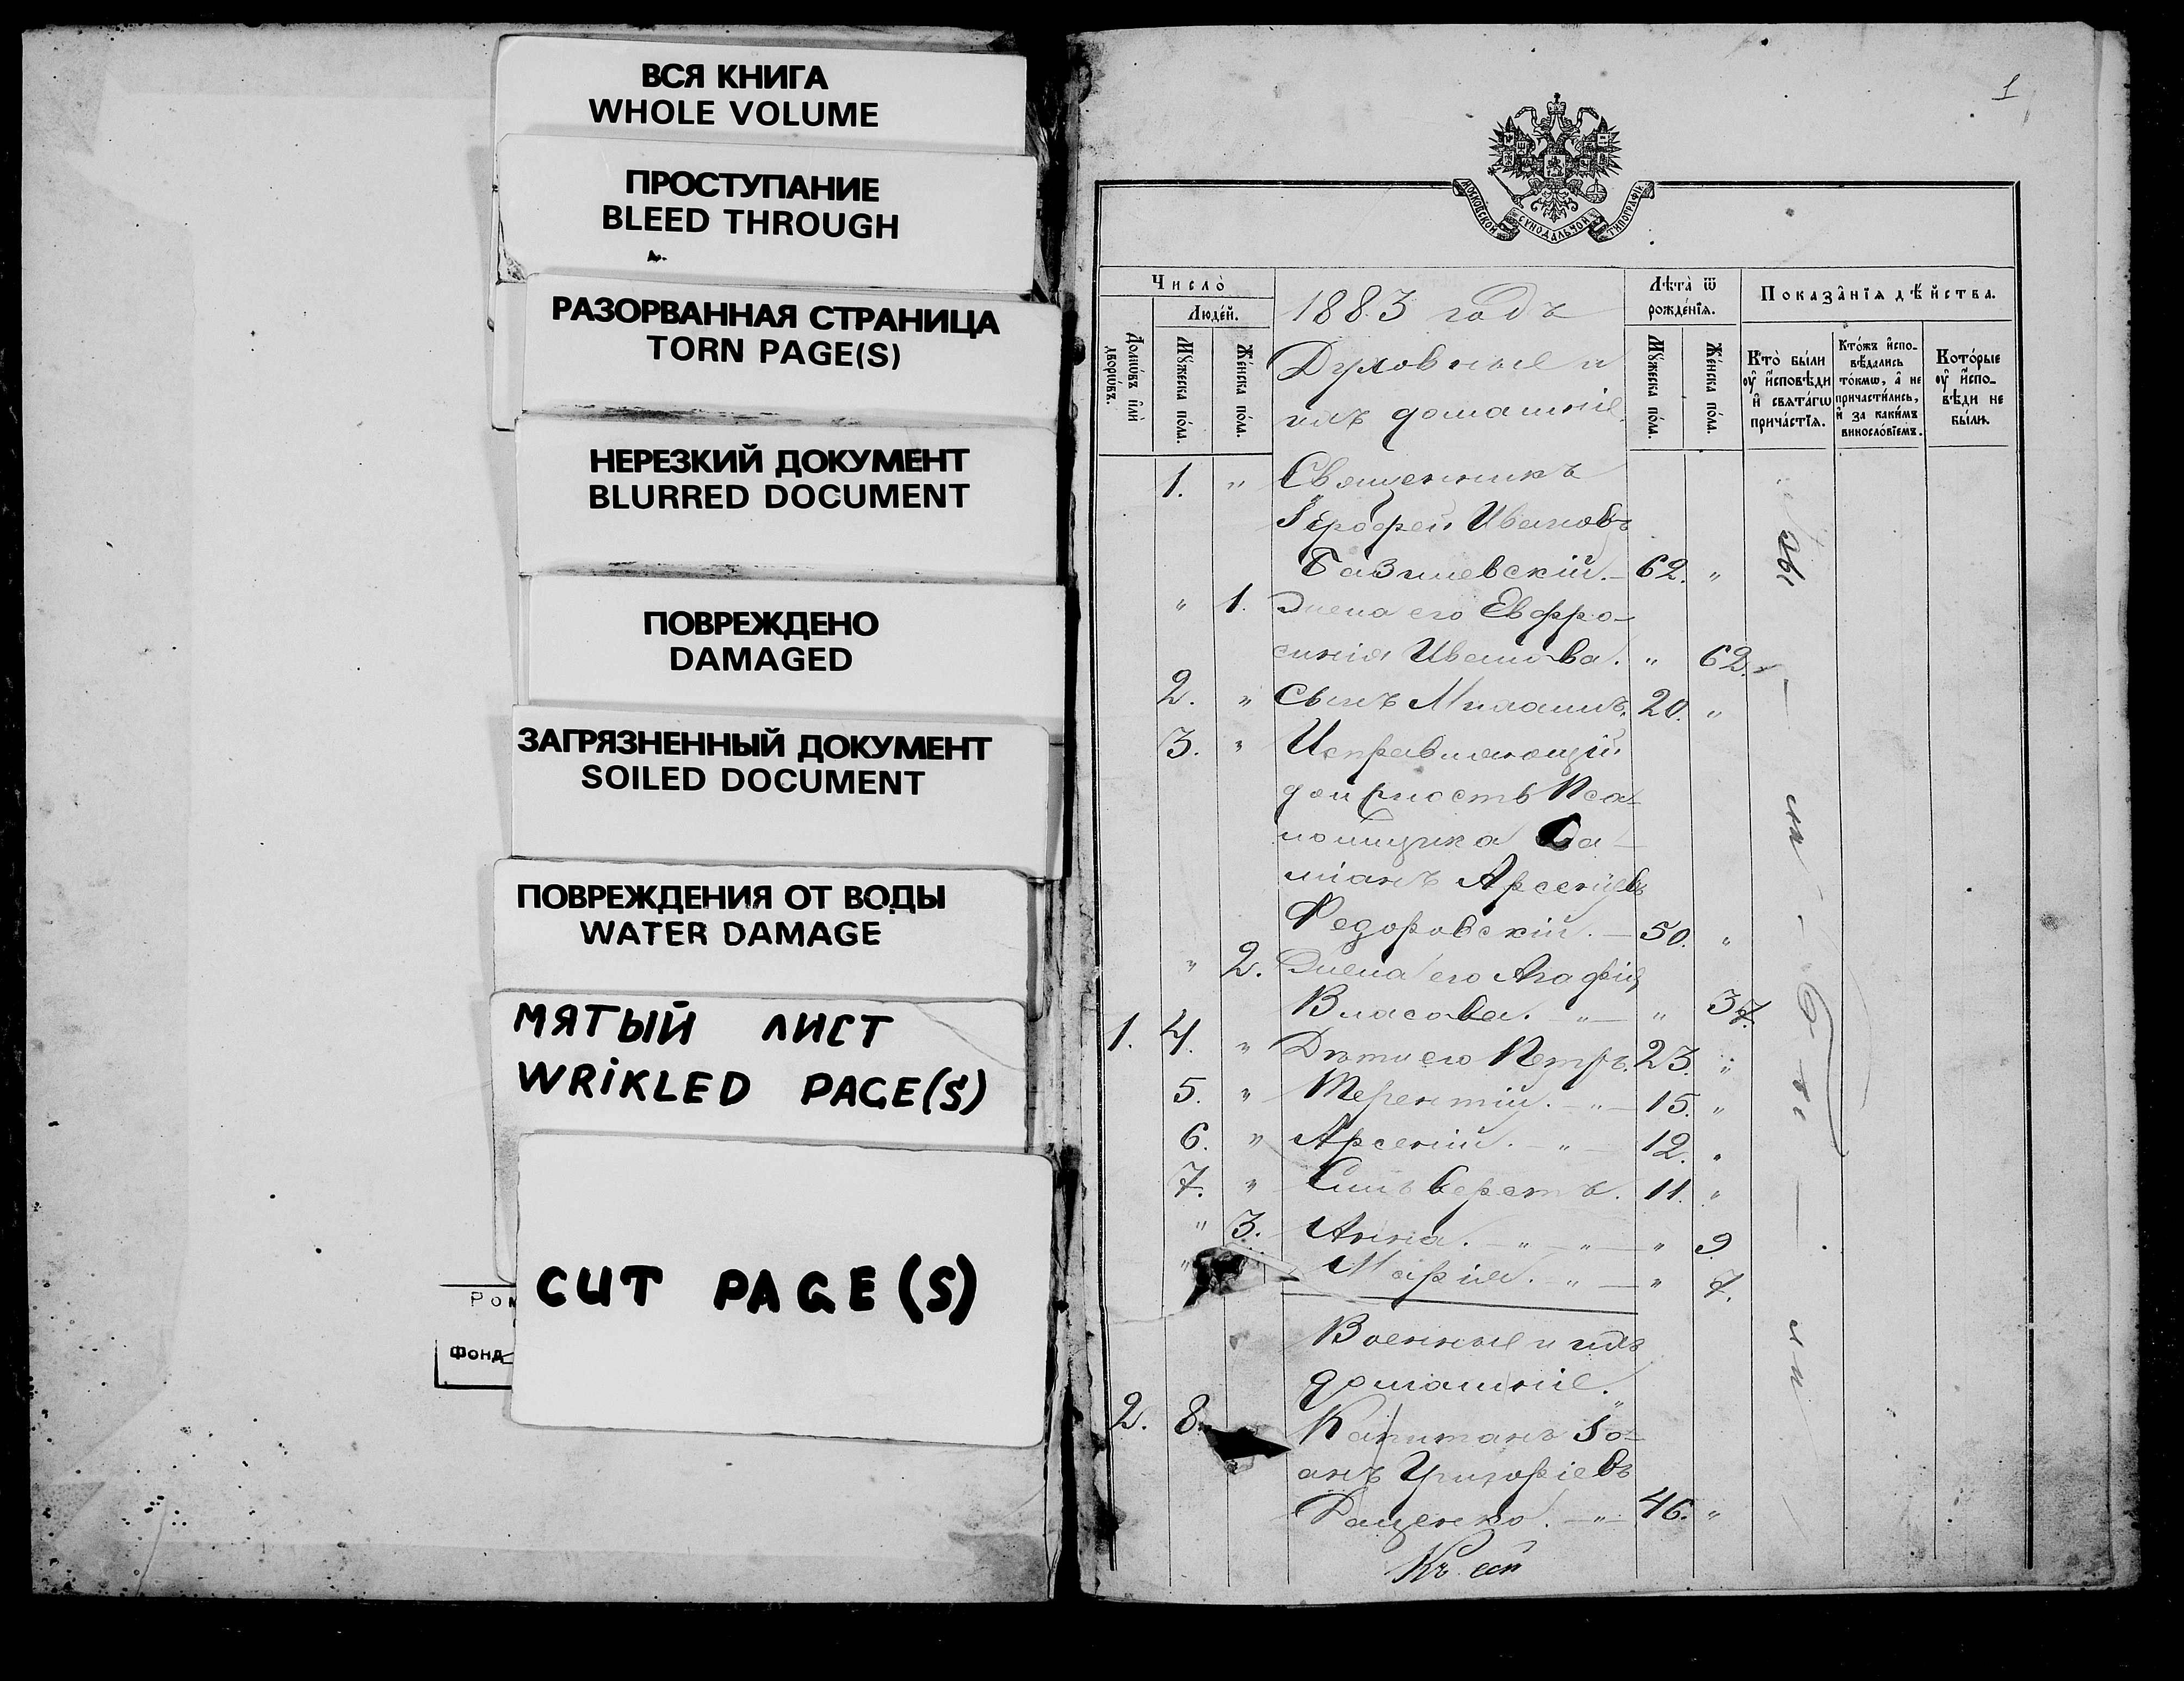 ВСЯ КНИГА
WHOLE VOLUME
ПРОСТУПАНИЕ
BLEED THROUGH
РАЗОРВАННАЯ СТРАНИЦА
TORN PAGE(S)
НЕРЕЗКИЙ ДОКУМЕНТ
BLURRED DOCUMENT
ПОВРЕЖДЕНО
DAMAGED
ЗАГРЯЗНЕННЫЙ ДОКУМЕНТ
SOILED DOCUMENT
ПОВРЕЖДЕНИЯ ОТ ВОДЫ
WATER DAMAGE
МЯТЫЙ ЛИСТ
WRiKLED PAGE(S)
CUT PAGE(S)
Фонд
1
МОСКОВСКОЙ СѴНОДАЛЬНОЙ ТИПОГРАФІИ
Число̀
Людéй.
Домѡ́въ и҆лѝ дворѡ́въ.
Мꙋ́жеска по́ла.
Же́нска по́ла.
1883 годъ
Духовные и
ихъ домашніе
Лѣ́та ѿ рожде́нїѧ.
Мꙋ́жеска по́ла.
Же́нска по́ла.
Показа̑нїѧ дѣ́йства.
Кто̀ бы́ли ᲂу҆ и҆сповѣ́ди и҆ свѧта́гѡ прича́стїѧ.
Кто́жъ и҆сповѣ́дались то́кмѡ, а҆ не причасти́лись, и҆ за каки́мъ винословїемъ.
Кото́рые ᲂу҆ и҆сповѣ́ди не бы́ли.
1. " Священникъ
Іерофей Ивановъ
Базилевскій. 62. "
" 1. Жена его Евфро-
синія Иванова. " 62.
2. " Сынъ Михаилъ. 20. "
3. " Исправляющій
должность Пса-
ломщика Да-
міанъ Арсеніевъ
Федоровскій. 50. "
" 2. Жена его Агафія
Власова. " " 37.
1. 4. " Дѣти его Петръ. 23. "
5. " Терентій. " 15. "
6. " Арсеній. " 12. "
7. " Сильверстъ. 11. "
" 3. Анна. " " " 9.
" Марія. " " 7.
Военные и ихъ
домашніе.
2. 8. Капитанъ Іо-
анъ Григоріевъ
Ращенко. " 46. "